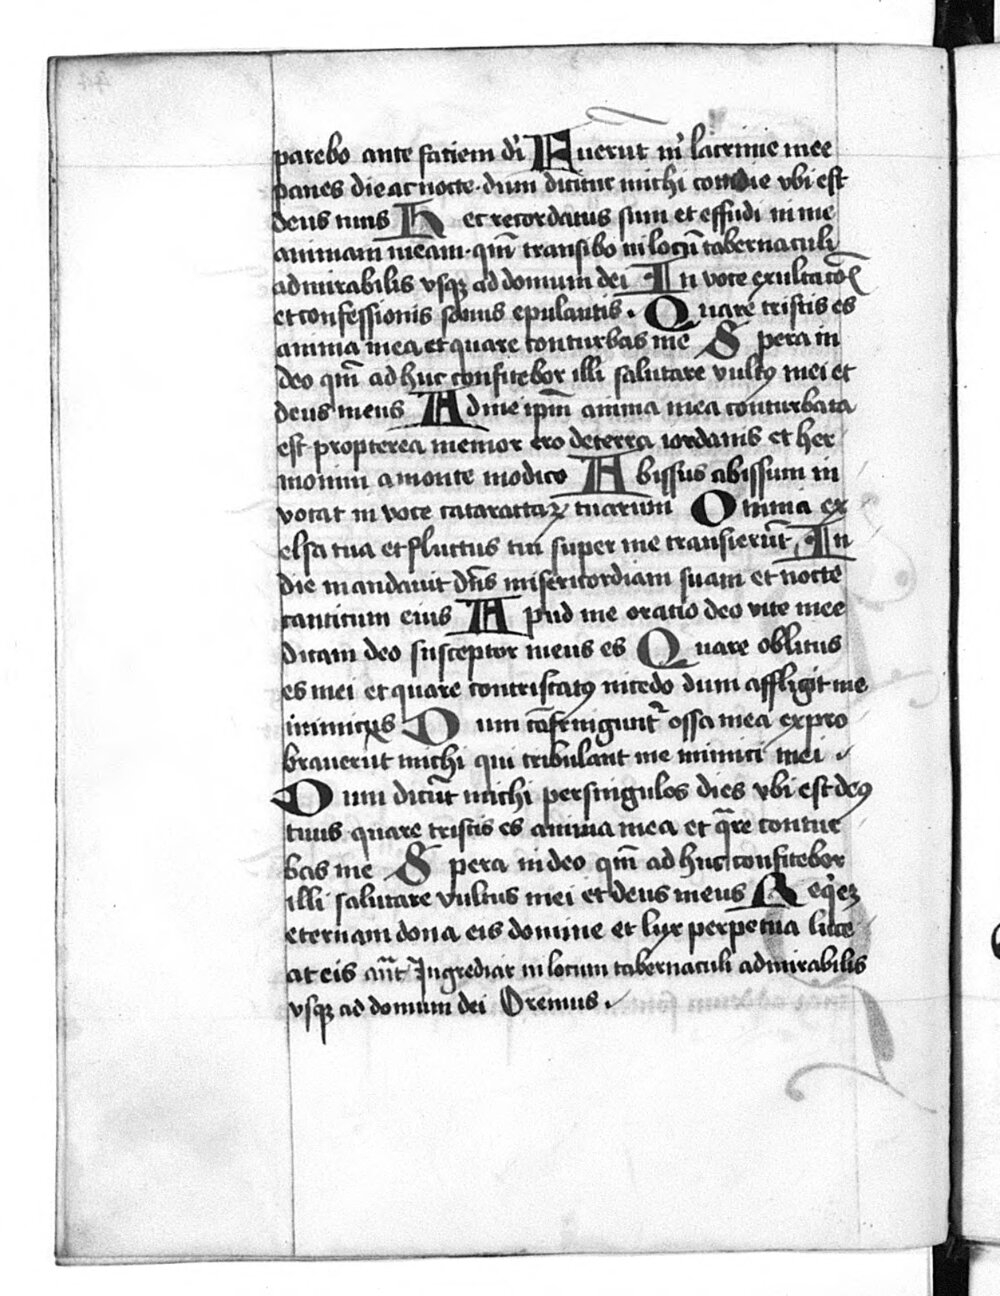 parebo ante faciem di Fuerut m̄ lacrimie mee
panes die ac nocte dum dicitur michi cottidie vbi est
deus tuus H ec recordatus sum et effudi in me
animam meam qm̄ transibo in locū tabernaculi
admirabilis vsqȝ ad domum dei In voce exultacōe
et confessionis sonus epulantis. Quare tristis es
anima mea et quare conturbas me Spera in
deo qm̄ ad huc confitebor illi salutare vultꝰ mei et
deus meus Ad me ip̄m anima mea cōturbata
est propterea memor ero de terra iordanis et her
moniim a monte modico Abissus abissum in
vocat in voce cataractaꝝ tuarum Omnia ex
celsa tua et fluctus tui super me transierūt In
die mandauit dn̄s misericordiam suam et nocte
canticum eius Apud me oratio deo vite mee
dicam deo susceptor meus es Quare oblitus
es mei et quare contristatꝰ incedo dum affligit me
inimicus Dum cōfringunt᷑ ossa mea expro
brauerūt michi qui tribulant me inimici mei
Dum dicūt michi per singulos dies vbi est deꝰ
tuus quare tristis es anima mea et q̄re contur
bas me Spera in deo qm̄ ad huc confitebor
illi salutare vultus mei et deus meus Requiē
eternam dona eis domine et lux perpetua luce
at eis an̄t Ingrediar in locum tabernaculi admirabilis
vsqȝ ad domum dei Oremus.